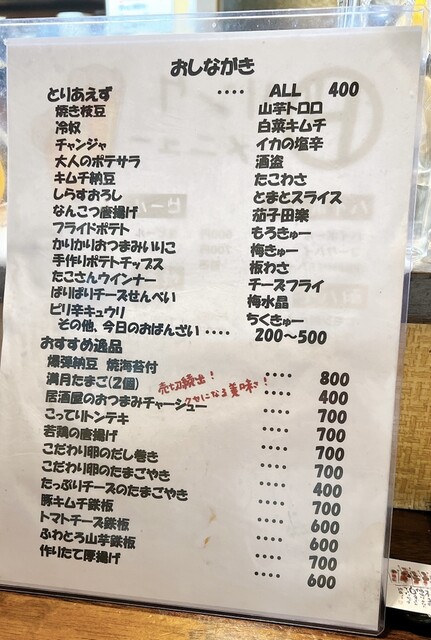 おしながき
とりあえず ････ ALL 400
焼き枝豆 山芋トロロ
冷奴 白菜キムチ
チャンジャ イカの塩辛
大人のポテサラ 酒盗
キムチ納豆 たこわさ
しらすおろし とまとスライス
なんこつ唐揚げ 茄子田楽
フライドポテト もろきゅー
かりかりおつまみいりこ 梅きゅー
手作りポテトチップス 板わさ
たこさんウインナー チーズフライ
ぱりぱりチーズせんべい 梅水晶
ピリ辛キュウリ ちくきゅー
その他、今日のおばんざい ････ 200～500
おすすめ逸品
爆弾納豆 焼海苔付 ････ 800
満月たまご(2個) 売切続出! ････ 400
居酒屋のおつまみチャーシュー クセになる美味さ! ････ 700
こってりトンテキ ････ 700
若鶏の唐揚げ ････ 700
こだわり卵のだし巻き ････ 700
こだわり卵のたまごやき ････ 400
たっぷりチーズのたまごやき ････ 700
豚キムチ鉄板 ････ 600
トマトチーズ鉄板 ････ 600
ふわとろ山芋鉄板 ････ 700
作りたて厚揚げ ････ 600